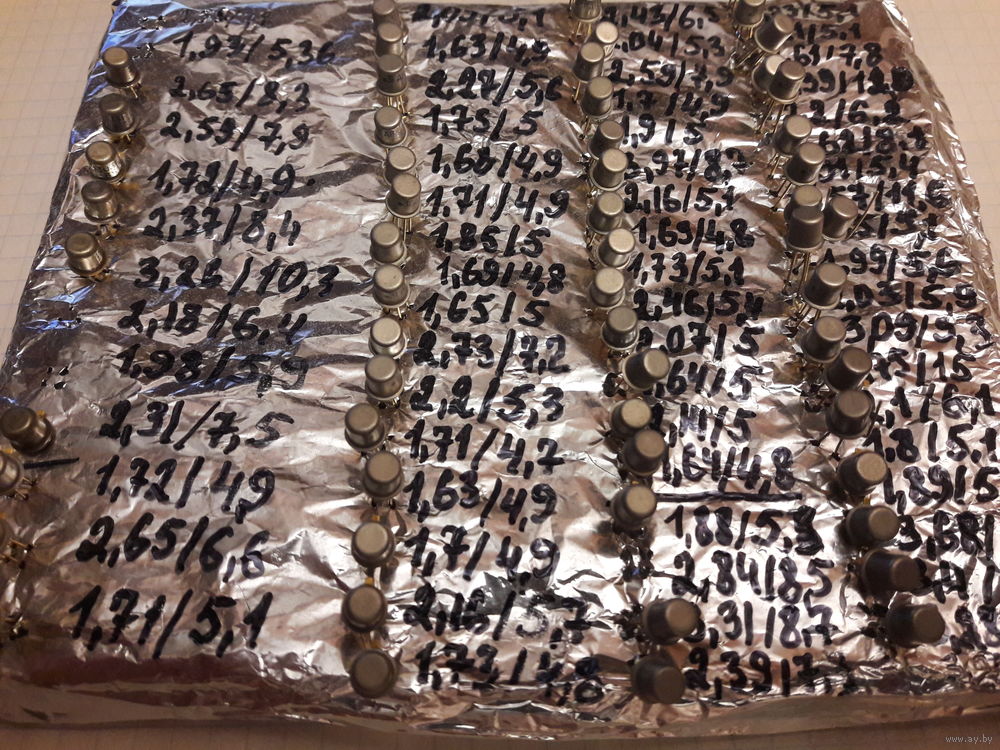 1,93/5,36
2,65/8,3
2,59/7,9
1,72/4,9
2,37/8,4
3,26/10,3
2,18/6,4
1,98/5,9
2,31/7,5
1,72/4,9
2,65/6,6
1,71/5,1
1,63/4,9
2,27/5,6
1,75/5
1,68/4,9
1,71/4,9
1,86/5
1,69/4,8
1,65/5
2,73/7,2
2,2/5,3
1,71/4,7
1,63/4,9
1,7/4,9
1,73/4,8
,43/6,
,04/5,3
2,59/7,9
1,7/4,9
1,9/5
2,16/5,1
1,69/4,8
1,73/5,1
2,46/5,4
,07/5
,64/5
1,64/4,8
1,88/5,3
2,84/8,5
,31/8,7
2,39/7,
/5,1
61/7,8
2/6,2
57/11,6
,03/5,9
3,09/9,3
,1/6,1
1,8/5,1
1,89/5
3,68/
www.ay.by